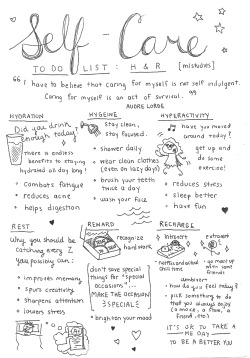 Self-Care
TO DO LIST: H & R [mistudies]
" I have to believe that caring for myself is not self indulgent.
Caring for myself is an act of survival. "
AUDRE LORDE
HYDRATION
Did you drink
enough today?
There is endless
benefits to staying
hydrated all day long!
combats fatigue
reduces acne
helps digestion
HYGEINE
stay clean,
stay focused.
shower daily
wear clean clothes
(even on lazy days)
brush your teeth
twice a day
wash your face
HYPERACTIVITY
have you moved
around today?
get up and
do some
exercise!
reduces stress
sleep better
have fun
REST
Why you should be
catching every Z
you possibly can:
improves memory
spurs creativity
sharpens attention
lowers stress
REWARD
recognize
hard work
don't save
special things
for "special
occasions"...
MAKE THE OCCASION
SPECIAL
brighten your mood
RECHARGE
introvert
netflix and
chill time
extrovert
go meet up
with some
friends
ambivert
how do you feel today?
pick something to do
that you always enjoy
(a movie, a show, a
friend, etc)
IT'S OK TO TAKE A
ME DAY
TO BE A BETTER YOU